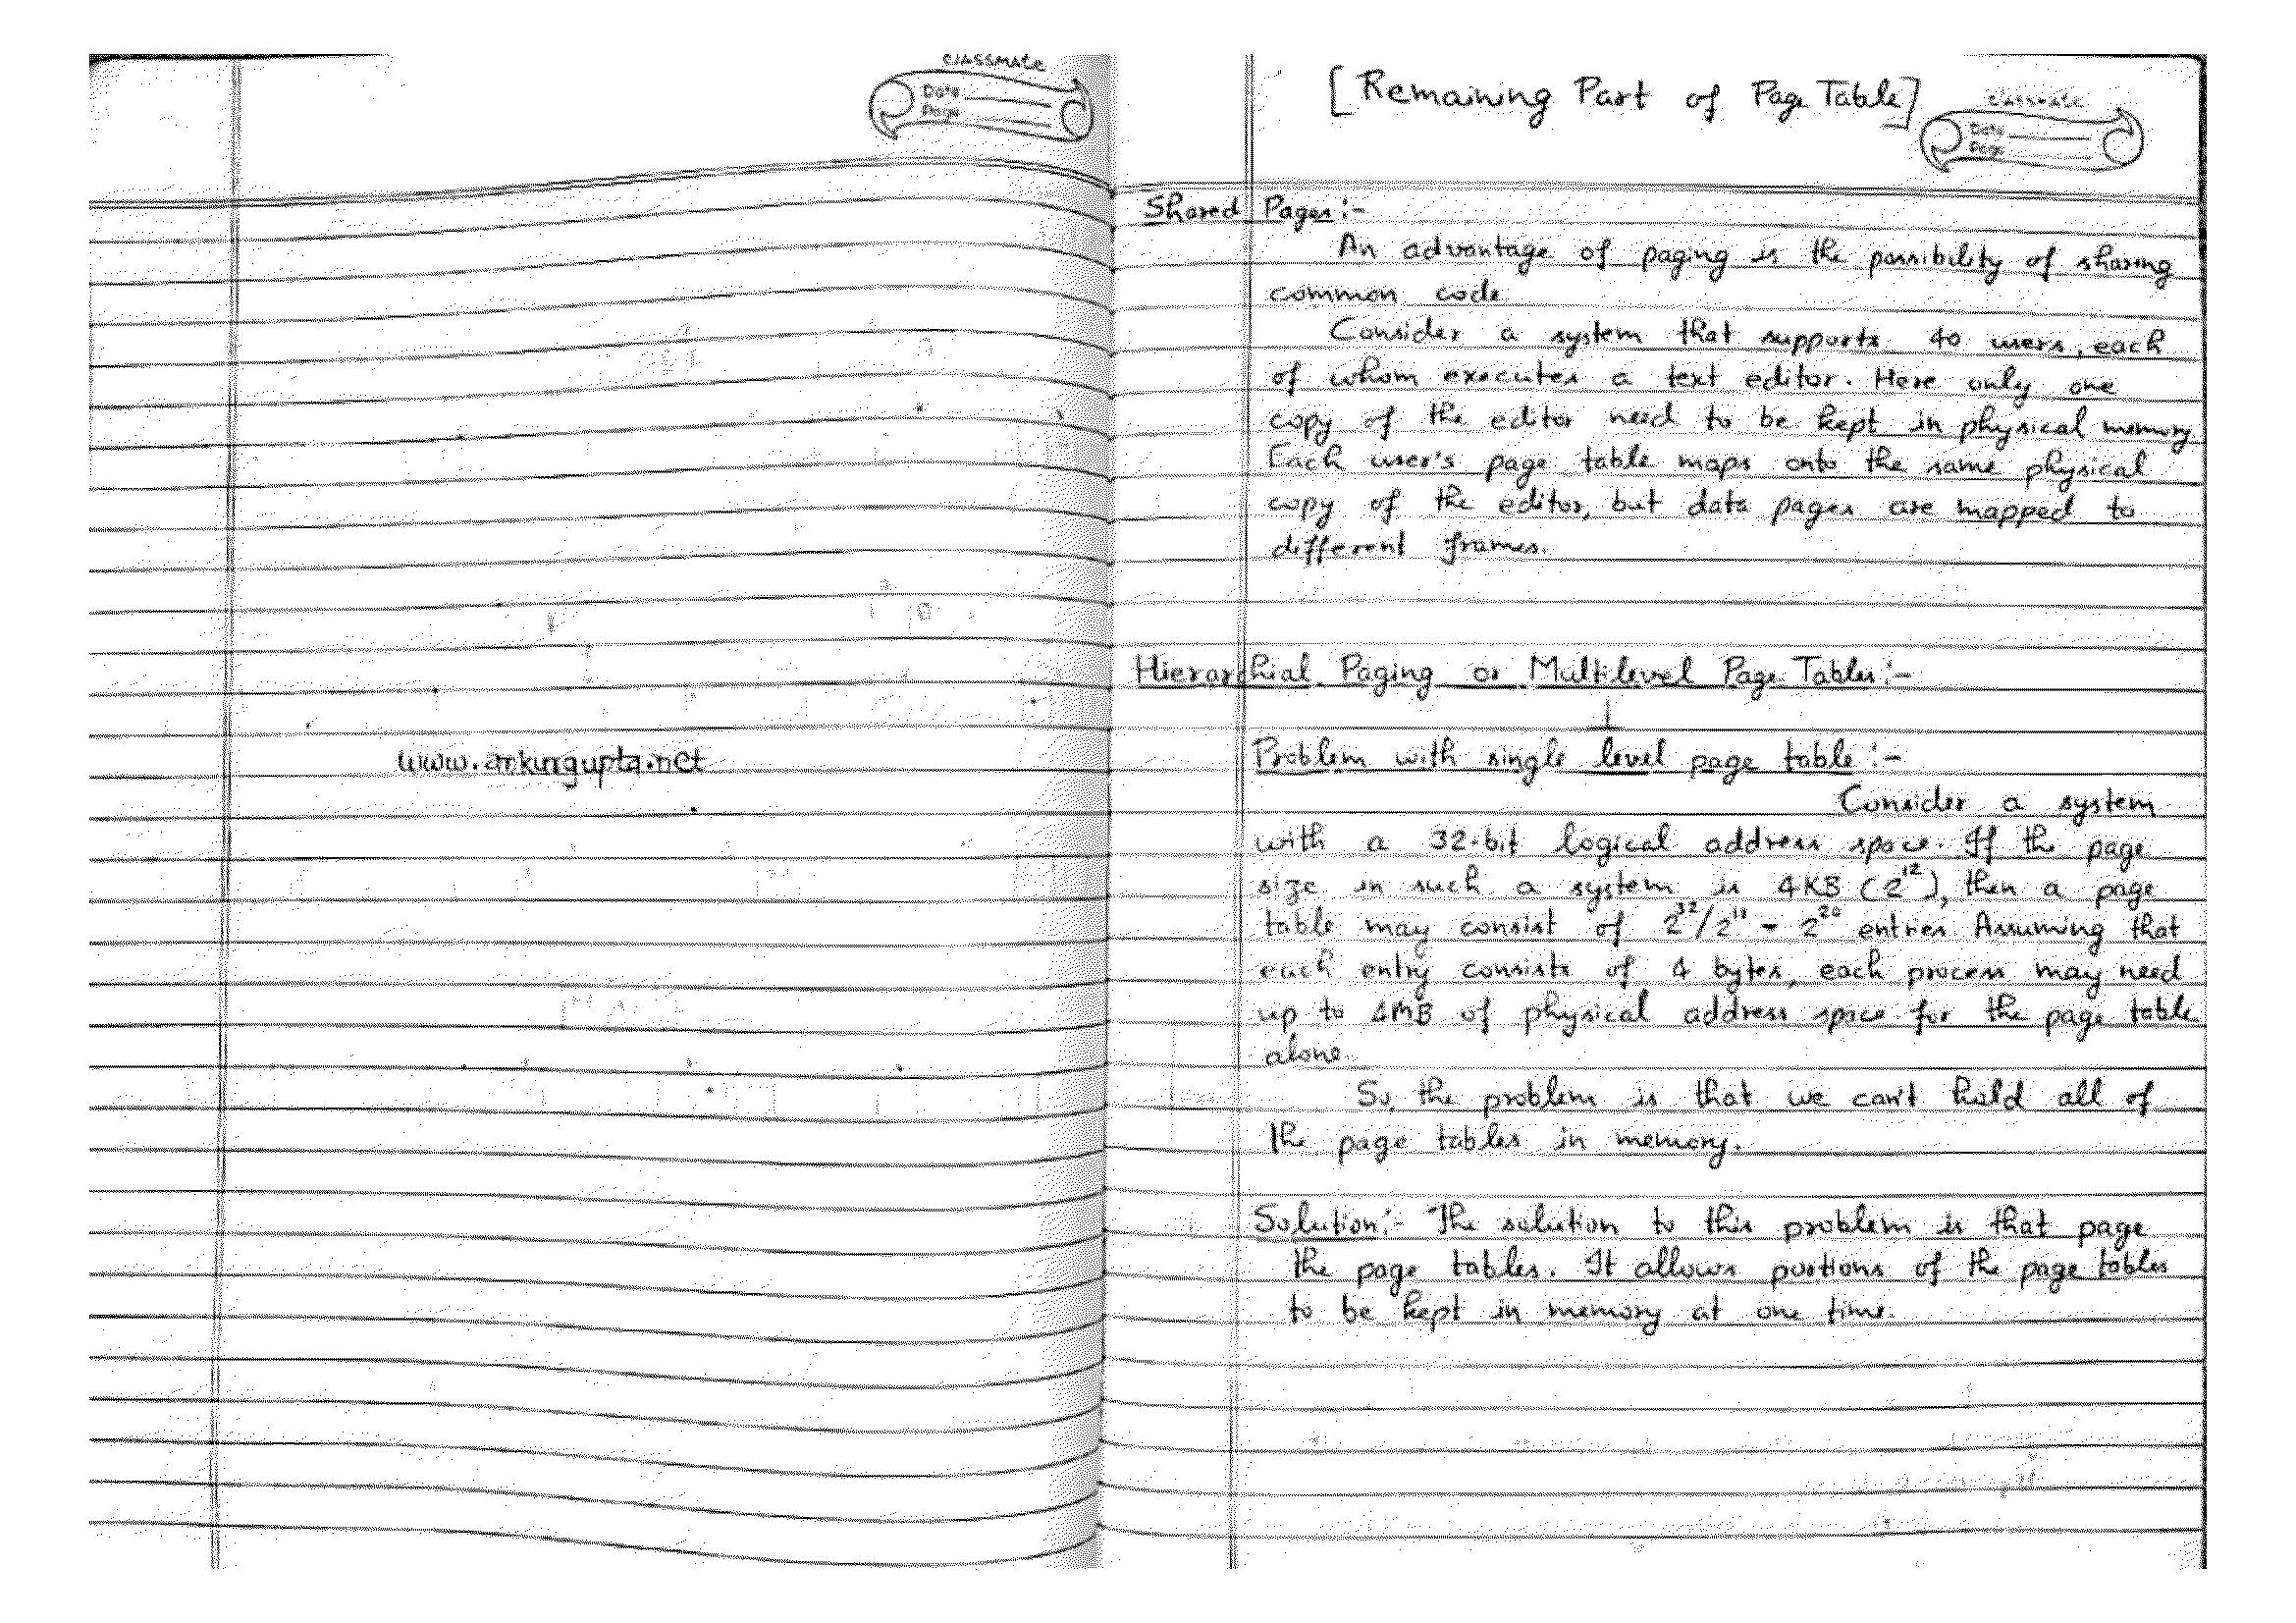 classmate
Date
Page
www.ankurgupta.net
[Remaining Part of Page Table]
classmate
Date
Page
Shared Pages:-
An advantage of paging is the possibility of sharing
common code.
Consider a system that supports 40 users, each
of whom executes a text editor. Here only one
copy of the editor need to be kept in physical memory.
Each user's page table maps onto the same physical
copy of the editor, but data pages are mapped to
different frames.
Hierarchial Paging or Multilevel Page Tables:-
Problem with single level page table:-
Consider a system
with a 32-bit logical address space. If the page
size in such a system is 4KB (2^12), then a page
table may consist of 2^32/2^12 = 2^20 entries. Assuming that
each entry consists of 4 bytes, each process may need
up to 4MB of physical address space for the page table
alone.
So, the problem is that we can't hold all of
the page tables in memory.
Solution:- The solution to this problem is that page
the page tables. It allows portions of the page tables
to be kept in memory at one time.